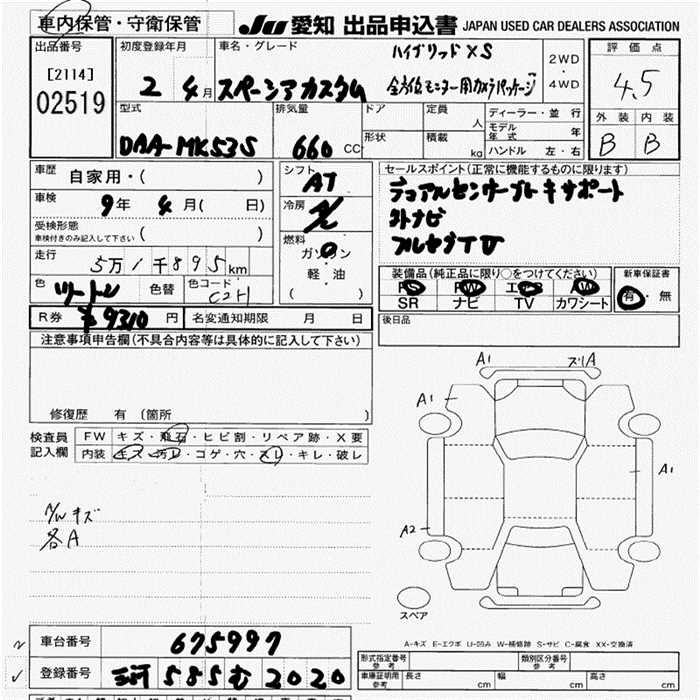 車内保管・守衛保管 JU 愛知 出品申込書 JAPAN USED CAR DEALERS ASSOCIATION
出品番号 [2114] 02519
初度登録年月 2 年 4月
車名・グレード スペーシアカスタム
ハイブリッドXS
全方位モニター用カメラパッケージ
2WD・4WD
評価点 4.5
外装 内装
B B
型式 DAA-MK53S
排気量 660 CC
ドア 形状
定員 人
積載 kg
ディーラー・並行
モデル年式 年
ハンドル 左・右
車歴 自家用・( )
車検 9年 4月( 日)
受検形態 車検付きのみ記入して下さい ( )
走行 5万1千895km
色 ツートン 色替 色コード C2H
R券 ¥9310円 名変通知期限 月 日
シフト AT
冷房
燃料 ガソリン
軽・油
( )
セールスポイント(正常に機能するものに限ります)
デュアルセンサーブレーキサポート
外ナビ
フルセグTV
装備品(純正品に限り○をつけてください)
PS PW エアB AW
SR ナビ TV カワシート
新車保証書 有・無
後日品
注意事項申告欄(不具合内容等は具体的に記入して下さい)
修復歴 有(箇所 )
検査員記入欄
FW キズ・飛石・ヒビ割・リペア跡・X要
内装 キズ・汚レ・コゲ・穴・スレ・キレ・破レ
ハンドルキズ
各A
A1 ズリA
A1
A1
A2
スペア
A-キズ E-エクボ U-凹み W-補修跡 S-サビ C-腐食 XX-交換済
車台番号 675997
登録番号 三河 585 む 2020
形式指定番号 参考
類別区分番号 参考
車庫証明用 参考 長さ cm 幅 cm 高さ cm